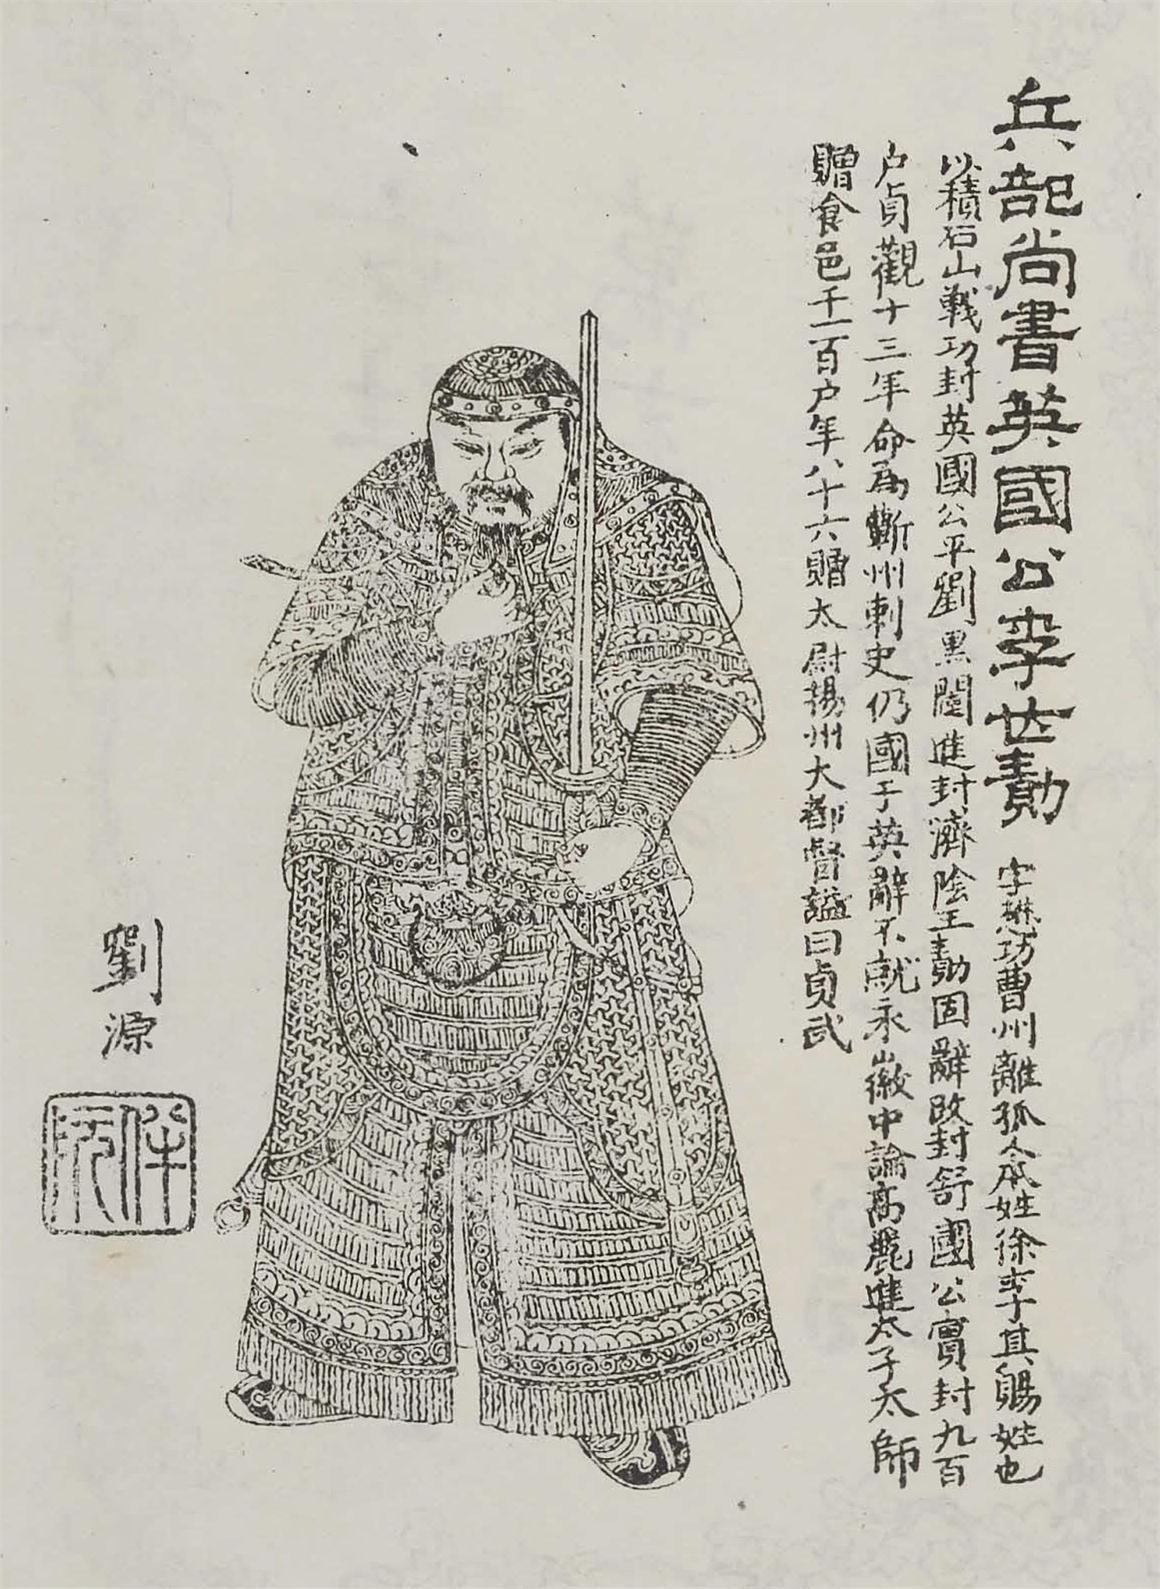 兵部尚書英國公李世勣 字懋功曹州離狐人本姓徐李其賜姓也
以積石山戰功封英國公平劉黑闥進封濟陰王勣固辭改封舒國公實封九百
户貞觀十三年命為蘄州刺史仍國于英辭不就永徽中論高麗進太子太師
贈食邑千一百户年八十六贈太尉揚州大都督謚曰貞武
劉源
伴阮